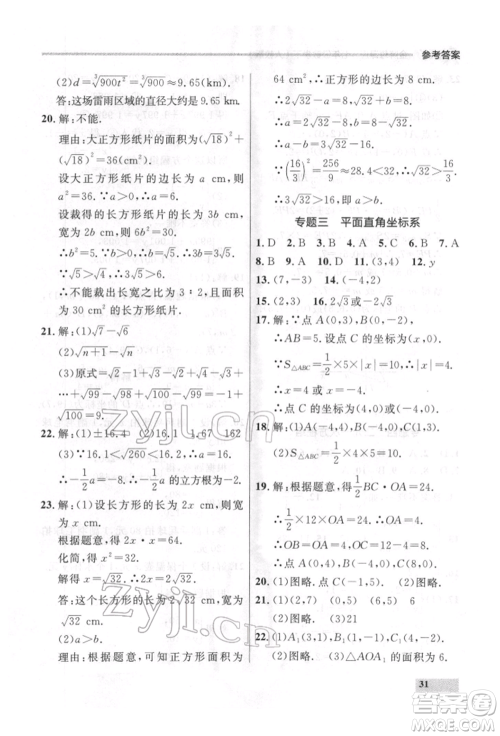 参考答案
(2)d=∛900t²=∛900≈9.65(km).
答:这场雷雨区域的直径大约是 9.65 km.
20. 解:不能.
理由:大正方形纸片的面积为(√18)²+
(√18)²=36(cm²).
设大正方形纸片的边长为 a cm,则
a²=36.∵a>0,∴a=6.
设裁得的长方形纸片的长为 3b cm,
宽为 2b cm,则 6b²=30.
∴b²=5.∵b>0,∴b=√5.
∵3√5>6,
∴不能裁出长宽之比为 3∶2,且面
积为 30 cm² 的长方形纸片.
21. 解:(1)√7-√6
(2)√n+1-√n
(3)原式=√2-1+√3-√2+
…+√99-√98+√100-√99=
-1+10=9.
22. 解:(1)±16.4 (2)1.67 162
(3)∵16.1<√260<16.2,∴a=16.
∴-½a=-8.∴-½a 的立方根为-2.
23. 解:(1)设长方形的长为 2x cm,宽
为 x cm.
根据题意,得 2x·x=64.
化简,得 x²=32.
解得 x=√32.∴2x=2√32.
答:这个长方形的长为 2√32 cm,宽
为√32 cm.
理由:根据题意,可知正方形面积为
64 cm²,∴正方形的边长为 8 cm.
∴2√32-a=8,√32+b=8.
∴a=2√32-8,b=8-√32.
∴a-b=3√32-16.
∵(16/3)²=256/9≈28.4<32,∴16/3<√32.
∴3√32>16.∴a>b.
专题三 平面直角坐标系
1. D 2. B 3. C 4. A 5. C 6. B 7. A
8. B 9. A 10. D 11. (3,4) 12. y
13. (7,-3) 14. (-4,3)
15. (2,3) 16. 2√3或-2√3
17. 解:∵点 A(0,3),点 B(0,-2),
∴AB=5.∵点 C 的坐标为(x,0),
∵S△ABC=½×5×|x|=10,∴x=±4.
∴点 C(4,0)或(-4,0).
18. 解:(1)A(-4,4),B(-3,0),C(-2,2).
(2)S△ABC=½×2×4-½×2×1=3.
19. 解:根据题意,得½BC·OA=24.
∴½×12×OA=24.∴OA=4.
∴OC=OB-BC=4-12=-8.
∴A(0,4),B(4,0),C(-8,0).
20. (1)图略. (2)图略.
21. (1)图略. (2)(1,6) (5,6) 6
(3)图略.
22. (1)A₁(3,1),B₁(1,-1),C₁(4,-2).
(2)图略. (3)点 P 的坐标为(4,0).
(4)四边形 ABOA₁ 的面积为 6.
31